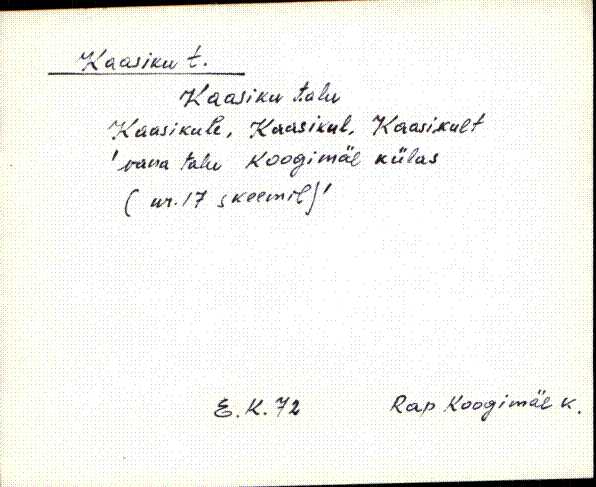 Kaasiku t.
Kaasiku talu
Kaasikule, Kaasikul, Kaasikult
'vana talu Koogimäe külas
(nr. 17 skeemil)'
E.K. 72 Rap Koogimäe k.